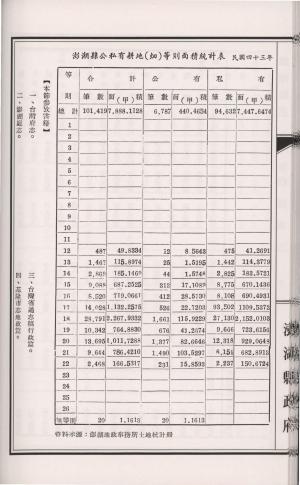 澎湖縣公私有耕地(畑)等則面積統計表 民國四十三年
等則 合計 公有 私有
筆數 面(甲)積 筆數 面(甲)積 筆數 面(甲)積
總計 101,419 7,888.1128 6,787 440.4654 94,632 7,447.6474
1
2
3
4
5
6
7
8
9
10
11
12 487 49.8334 12 8.5643 475 41.2691
13 1,467 115.8974 25 1.5195 1,442 114.3779
14 2,869 185.1469 44 1.5748 2,825 183.5721
15 9,088 687.2525 313 17.1089 8,775 670.1436
16 8,520 719.0661 412 28.5730 8,108 690.4931
17 14,028 1,132.2575 526 22.7203 13,502 1109.5372
18 28,791 2,267.9332 1,661 115.9229 27,130 2,152.0103
19 10,342 764.8830 676 41.2674 9,666 723.6156
20 13,695 1,011.7288 1,377 82.6646 12,318 929.0642
21 9,644 786.4210 1,490 103.5297 8,154 682.8913
22 2,468 166.5317 231 15.8593 2,237 150.6724
23
24
25
26
無等則 20 1.1613 20 1.1613
資料來源：澎湖地政事務所土地統計冊
【本節參放書籍】
一、台灣府志。
二、澎湖廳志。
三、台灣省通志稿行政篇。
四、基隆市志地政篇。
澎湖縣政府